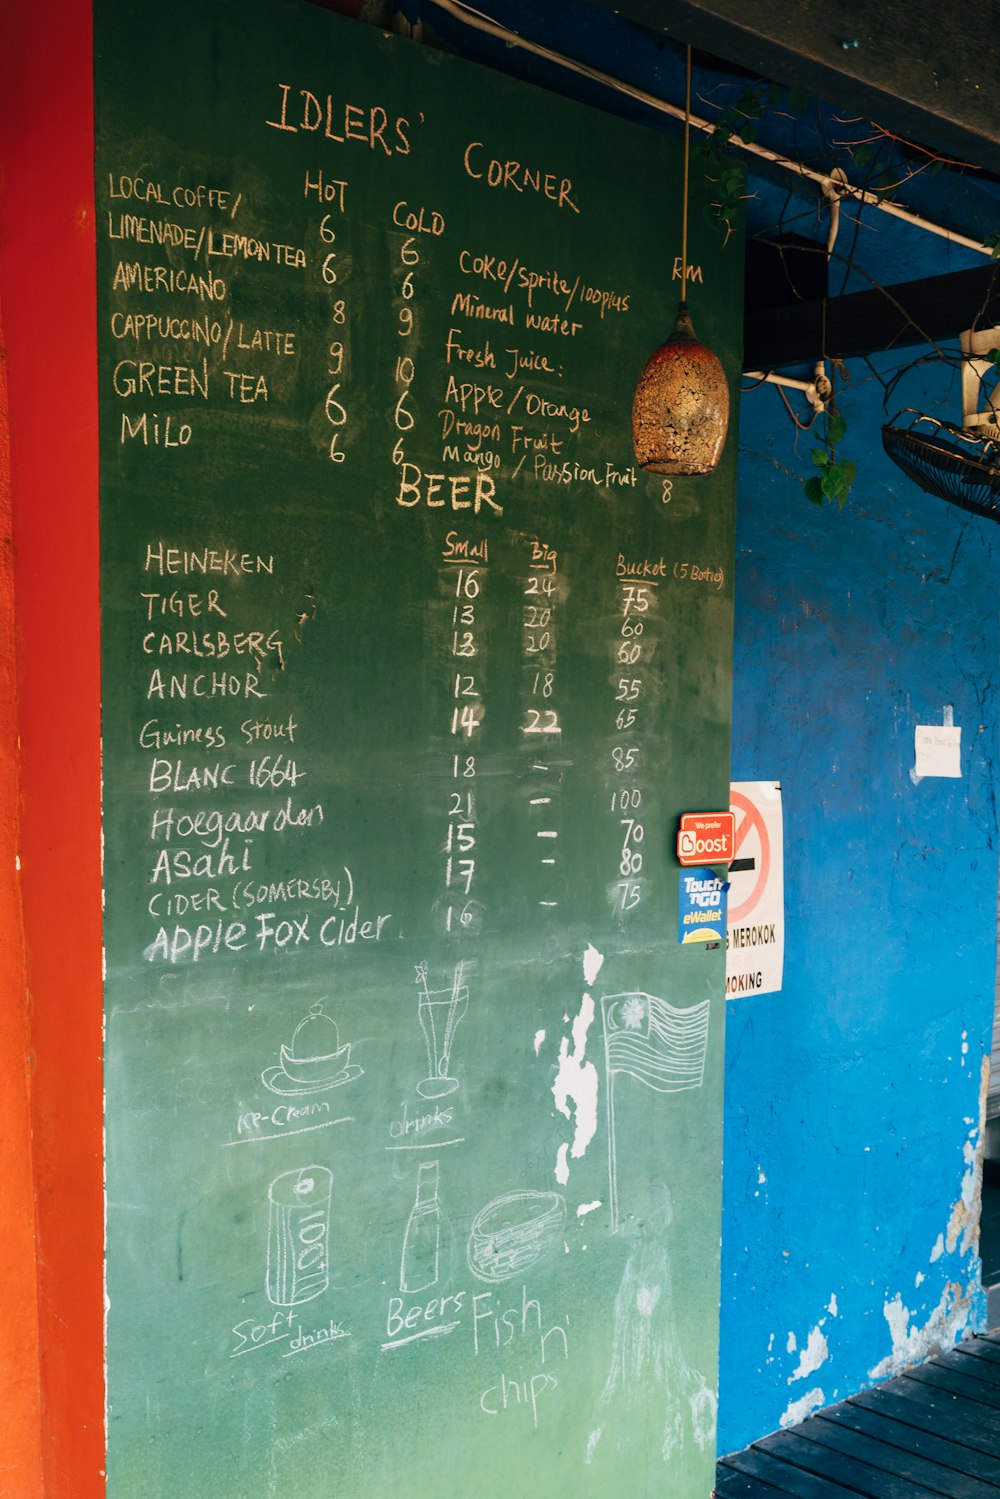 IDLERS' CORNER
HOT COLD
LOCAL COFFE/ 6 6
LIMENADE/LEMON TEA 6 6
AMERICANO 8 9
CAPPUCCINO/LATTE 9 10
GREEN TEA 6 6
MILO 6 6
RM
Coke/Sprite/100plus
Mineral water
Fresh Juice:
Apple/Orange
Dragon Fruit
Mango / Passion Fruit 8
BEER
Small Big Bucket (5 Bottle)
HEINEKEN 16 24 75
TIGER 13 20 60
CARLSBERG 13 20 60
ANCHOR 12 18 55
Guiness Stout 14 22 65
BLANC 1664 18 - 85
Hoegaarden 21 - 100
Asahi 15 - 70
CIDER (SOMERSBY) 17 - 80
APPle FOX Cider 16 - 75
We prefer
Boost
Touch
'nGO
eWallet
MEROKOK
OKING
ice-cream
drinks
100+
Soft drinks
Beers
Fish n'
chips